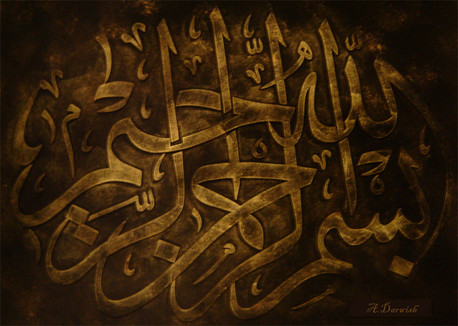 بسم الله الرحمن الرحيم
A.Darwish